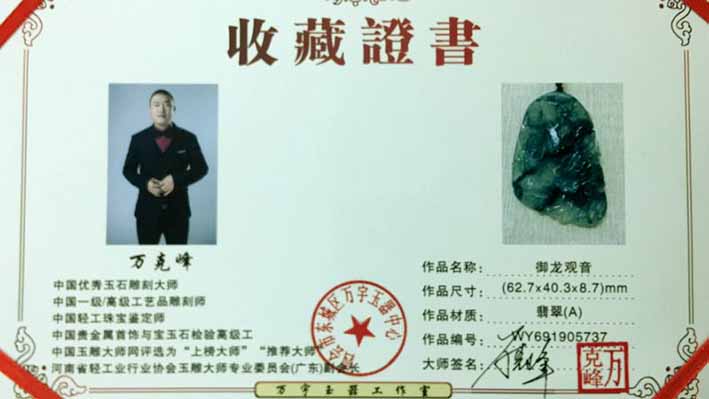 收藏證書
万克峰
中国优秀玉石雕刻大师
中国一级/高级工艺品雕刻师
中国轻工珠宝鉴定师
中国贵金属首饰与宝玉石检验高级工
中国玉雕大师网评选为“上榜大师”“推荐大师”
河南省轻工业行业协会玉雕大师专业委员会(广东)副会长
作品名称: 御龙观音
作品尺寸: (62.7x40.3x8.7)mm
作品材质: 翡翠(A)
作品编号: WY691905737
大师签名: 万克峰
万克峰
市东城区万宇玉器中心
万宇玉器工作室